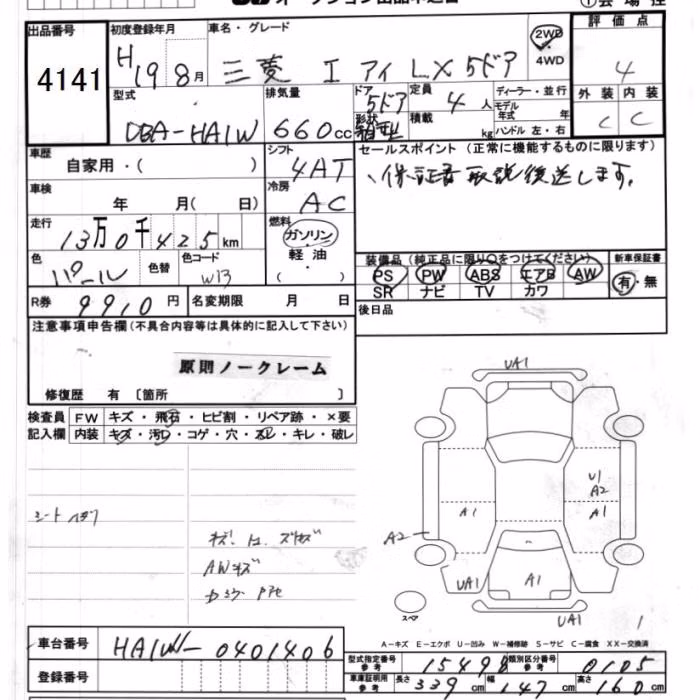 出品番号
4141
初度登録年月
H19 8月
車名・グレード
三菱 I アイ LX 5ドア
2WD
4WD
評価点
4
型式
DBA-HA1W
排気量
660cc
ドア
5ドア
形状
定員
4人
積載
kg
ディーラー・並行
モデル年式 年
ハンドル 左・右
外装 内装
C C
車歴
自家用・( )
シフト
4AT
セールスポイント (正常に機能するものに限ります)
、保証書 取説後送します。
車検
年 月( 日)
冷房
AC
走行
13万0千425km
燃料
ガソリン
軽油
( )
色
パール
色替
色コード
W13
装備品 (純正品に限り○をつけてください)
PS PW ABS エアB AW
SR ナビ TV カワ
新車保証書
有・無
R券 9910円
名変期限 月 日
後日品
注意事項申告欄 (不具合内容等は具体的に記入して下さい)
原則ノークレーム
修復歴 有 〔箇所 〕
検査員記入欄
FW キズ・飛石・ヒビ割・リペア跡・×要
内装 キズ・汚レ・コゲ・穴・スレ・キレ・破レ
AWキズ
UA1
U1
A2
A1
A1
A2
UA1
A1
UA1
スペア
1
A-キズ E-エクボ U-凹み W-補修跡 S-サビ C-腐食 XX-交換済
車台番号 HA1W-0401406
登録番号
型式指定番号 参考 15498
類別区分番号 参考 0105
車庫証明用 参考 長さ 339cm 幅 147cm 高さ 160cm